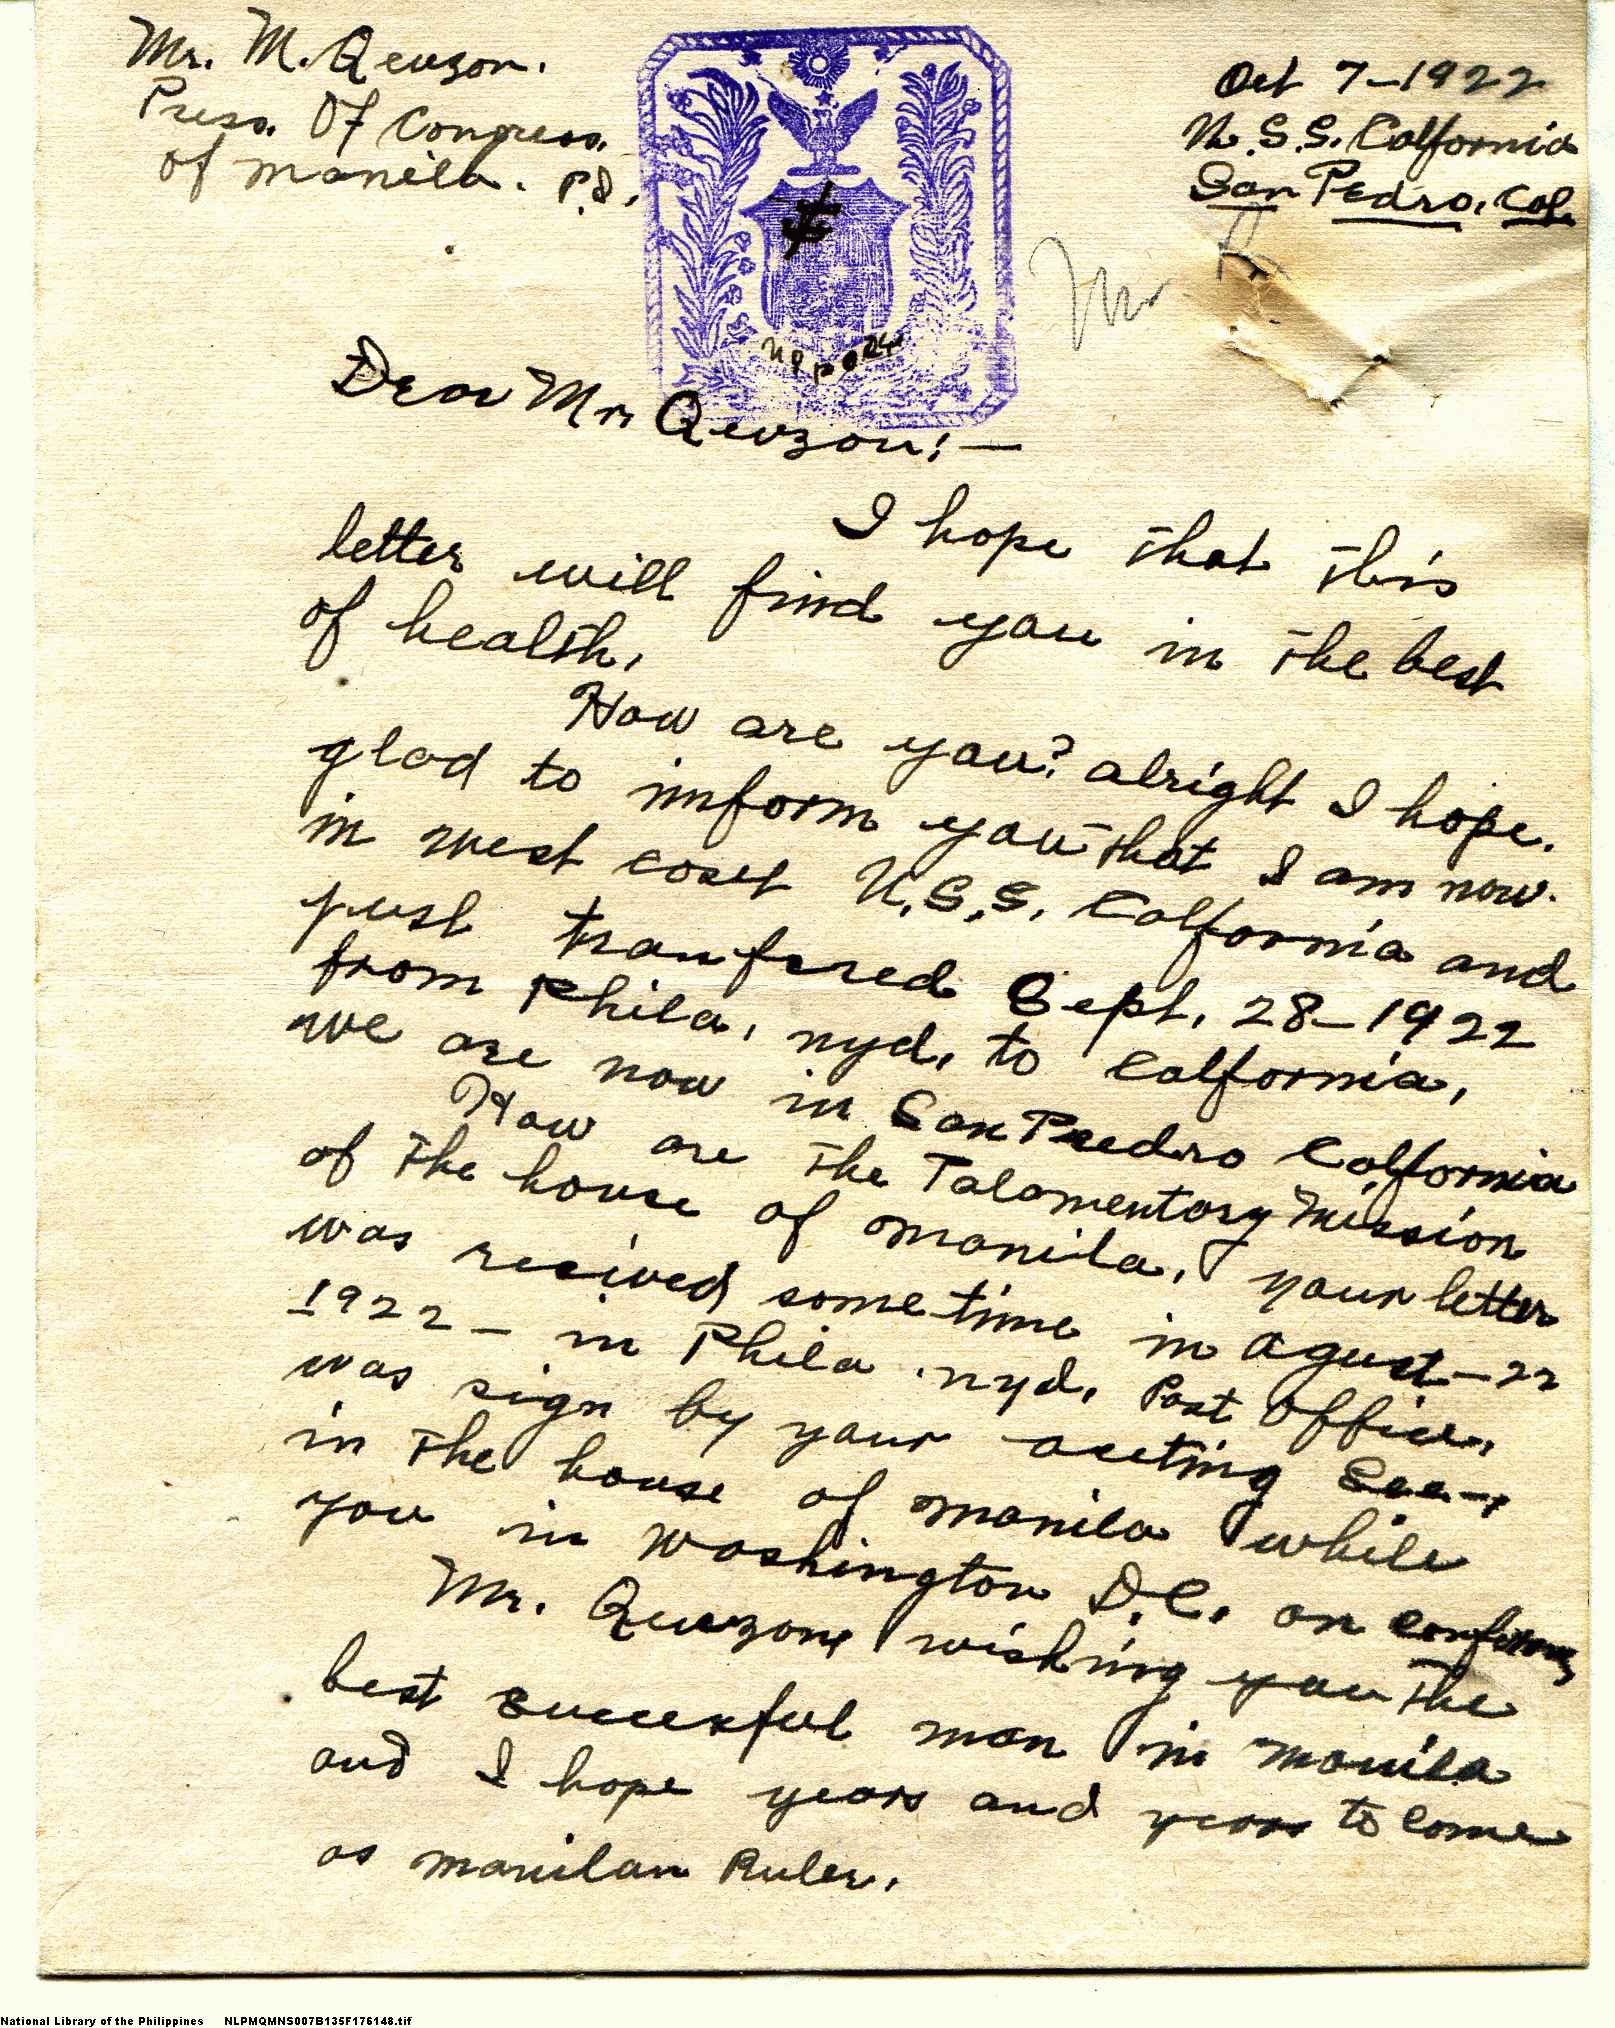 Mr. M. Qeuzon.
Press. Of Congress.
of manila. P.I.
Oct 7-1922
U.S.S. Calfornia
San Pedro, Cal.
Mr
Dear Mr. Qeuzon:—
I hope that this
letter will find you in the best
of health.
How are you? alright I hope.
glad to imform you that I am now
in west coast U.S.S. Calfornia and
just tranfered Sept. 28-1922
from Phila. nyd. to Calfornia,
we are now in San Peedro Calfornia
How are the Talamentory Mission
of the house of manila. your letter
was recived sometime in Agust-22
1922- in Phila. nyd. Post Office,
was sign by your acting Sec-,
in the house of manila while
you in Washington D.C. on
Mr. Queuzone wishing you the
best succesful man in manila
and I hope years and years to come
as manilan Ruler.
National Library of the Philippines NLPMQMNS007B135F176148.tif